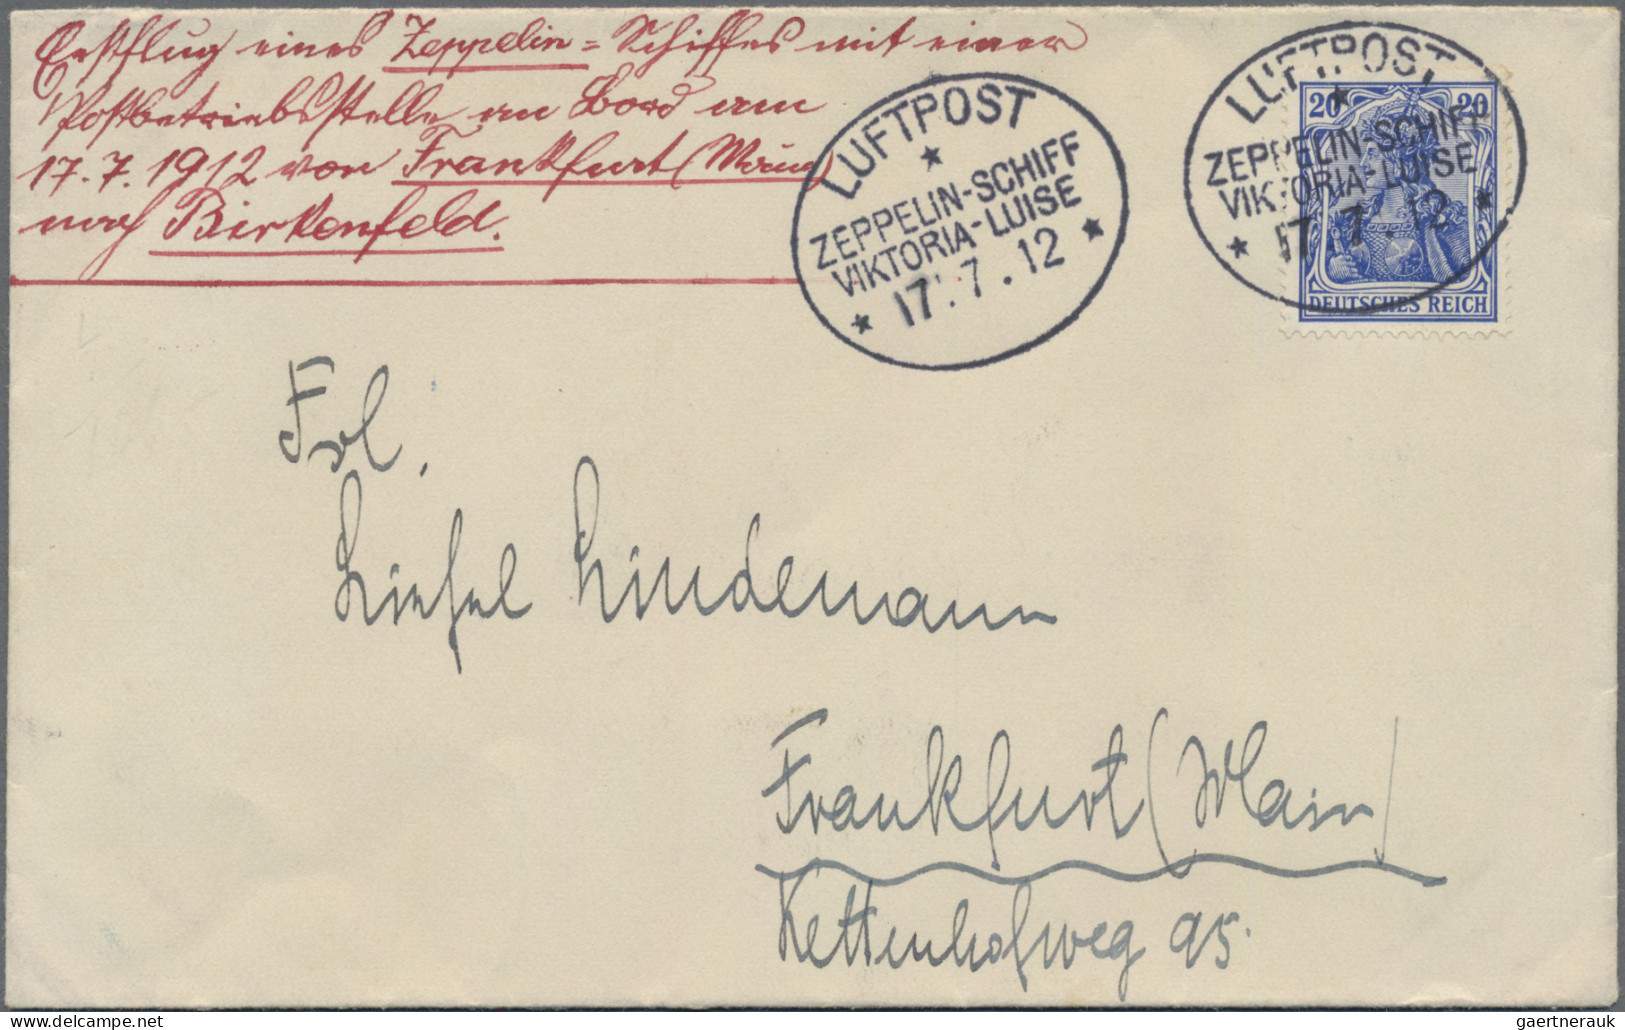 Erstflug eines Zeppelin=Schiffes mit einer
Postbetriebsstelle an Bord am
17.7.1912 von Frankfurt (Main)
nach Birkenfeld.
LUFTPOST
ZEPPELIN-SCHIFF
VIKTORIA-LUISE
17.7.12
LUFTPOST
ZEPPELIN-SCHIFF
VIKTORIA-LUISE
17.7.12
20 20
DEUTSCHES REICH
Frl.
Liesel Lindemann
Frankfurt (Main)
Kettenhofweg 95.
gaertnerauk